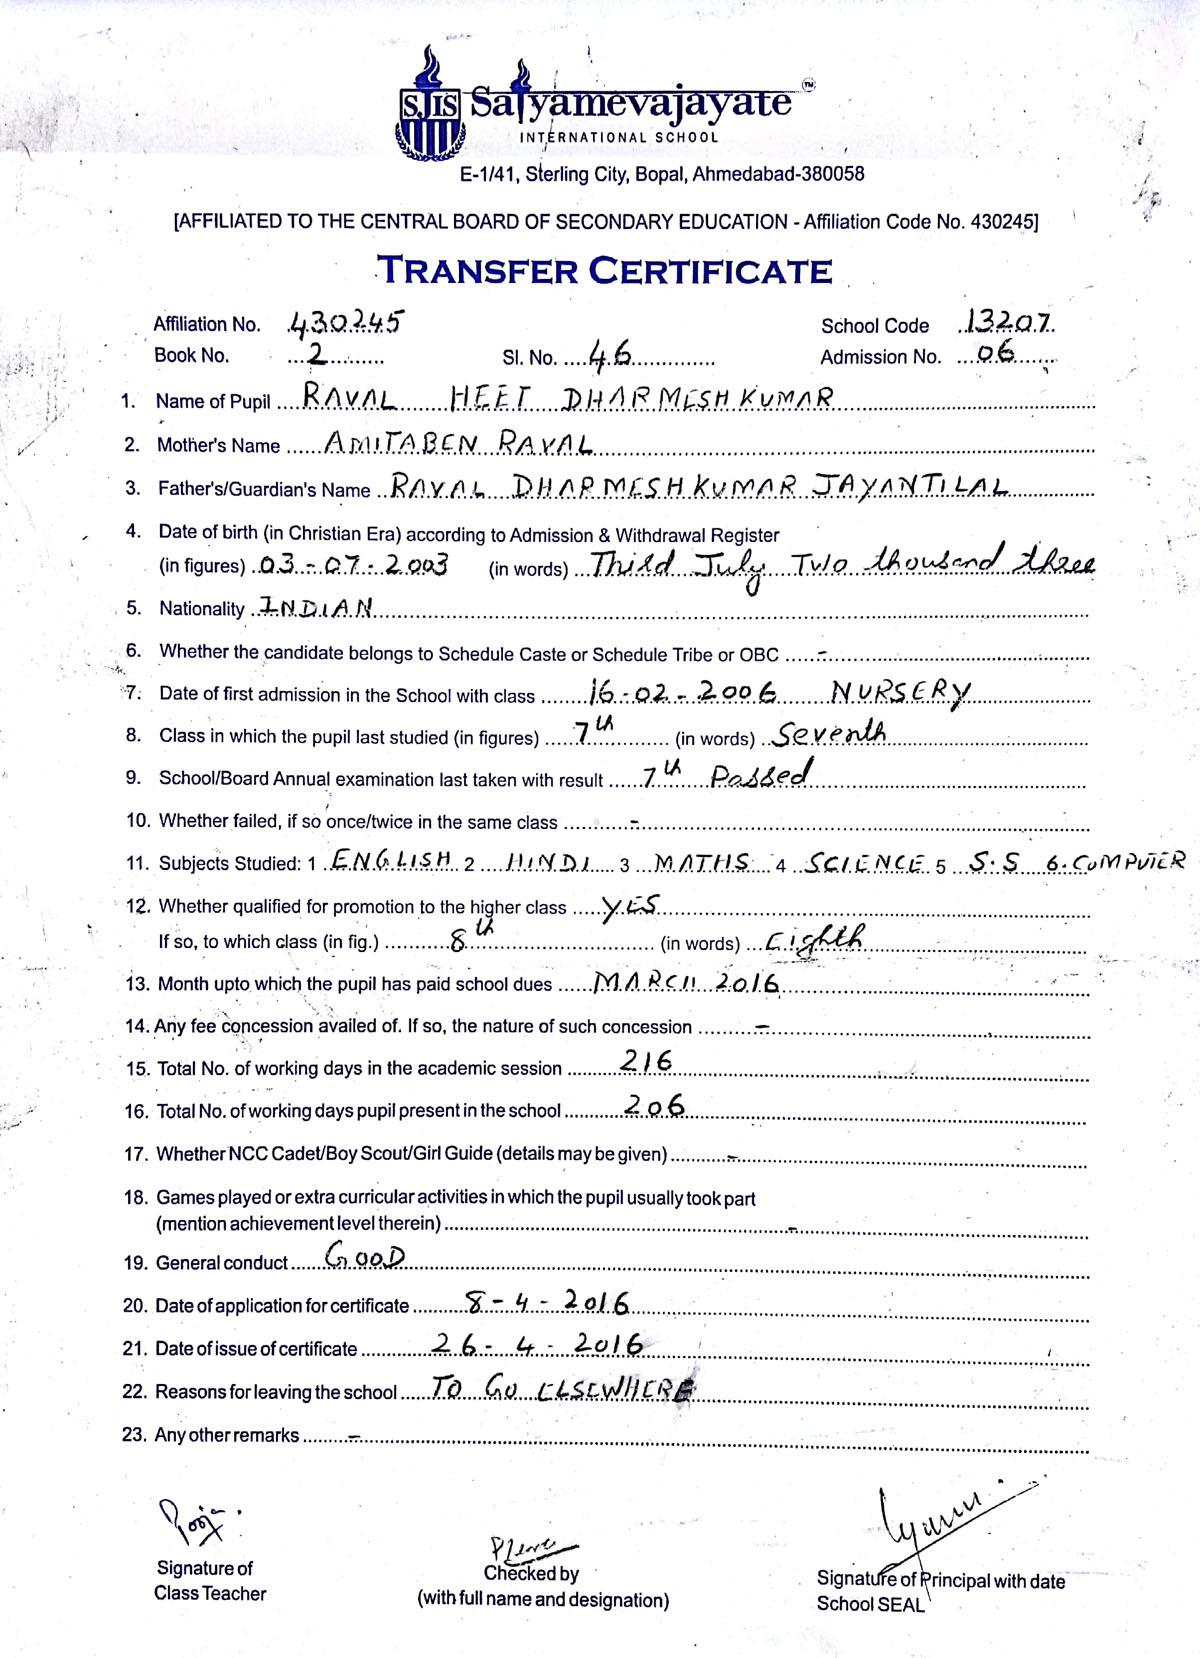 SJIS Satyamevajayate TM
INTERNATIONAL SCHOOL
E-1/41, Sterling City, Bopal, Ahmedabad-380058
[AFFILIATED TO THE CENTRAL BOARD OF SECONDARY EDUCATION - Affiliation Code No. 430245]
TRANSFER CERTIFICATE
Affiliation No. 430245 School Code 13207
Book No. 2 Sl. No. 46 Admission No. 06
1. Name of Pupil RAVAL HEET DHARMESHKUMAR
2. Mother's Name AMITABEN RAVAL
3. Father's/Guardian's Name RAVAL DHARMESHKUMAR JAYANTILAL
4. Date of birth (in Christian Era) according to Admission & Withdrawal Register
(in figures) 03-07-2003 (in words) Third July Two thousand three
5. Nationality INDIAN
6. Whether the candidate belongs to Schedule Caste or Schedule Tribe or OBC -
7. Date of first admission in the School with class 16-02-2006 NURSERY
8. Class in which the pupil last studied (in figures) 7th (in words) Seventh
9. School/Board Annual examination last taken with result 7th Passed
10. Whether failed, if so once/twice in the same class -
11. Subjects Studied: 1 ENGLISH 2 HINDI 3 MATHS 4 SCIENCE 5 S.S 6. COMPUTER
12. Whether qualified for promotion to the higher class YES
If so, to which class (in fig.) 8th (in words) Eighth
13. Month upto which the pupil has paid school dues MARCH 2016
14. Any fee concession availed of. If so, the nature of such concession -
15. Total No. of working days in the academic session 216
16. Total No. of working days pupil present in the school 206
17. Whether NCC Cadet/Boy Scout/Girl Guide (details may be given) -
18. Games played or extra curricular activities in which the pupil usually took part
(mention achievement level therein) -
19. General conduct GOOD
20. Date of application for certificate 8-4-2016
21. Date of issue of certificate 26-4-2016
22. Reasons for leaving the school TO GO ELSEWHERE
23. Any other remarks -
Pooja
Signature of
Class Teacher
Checked by
(with full name and designation)
Signature of Principal with date
School SEAL